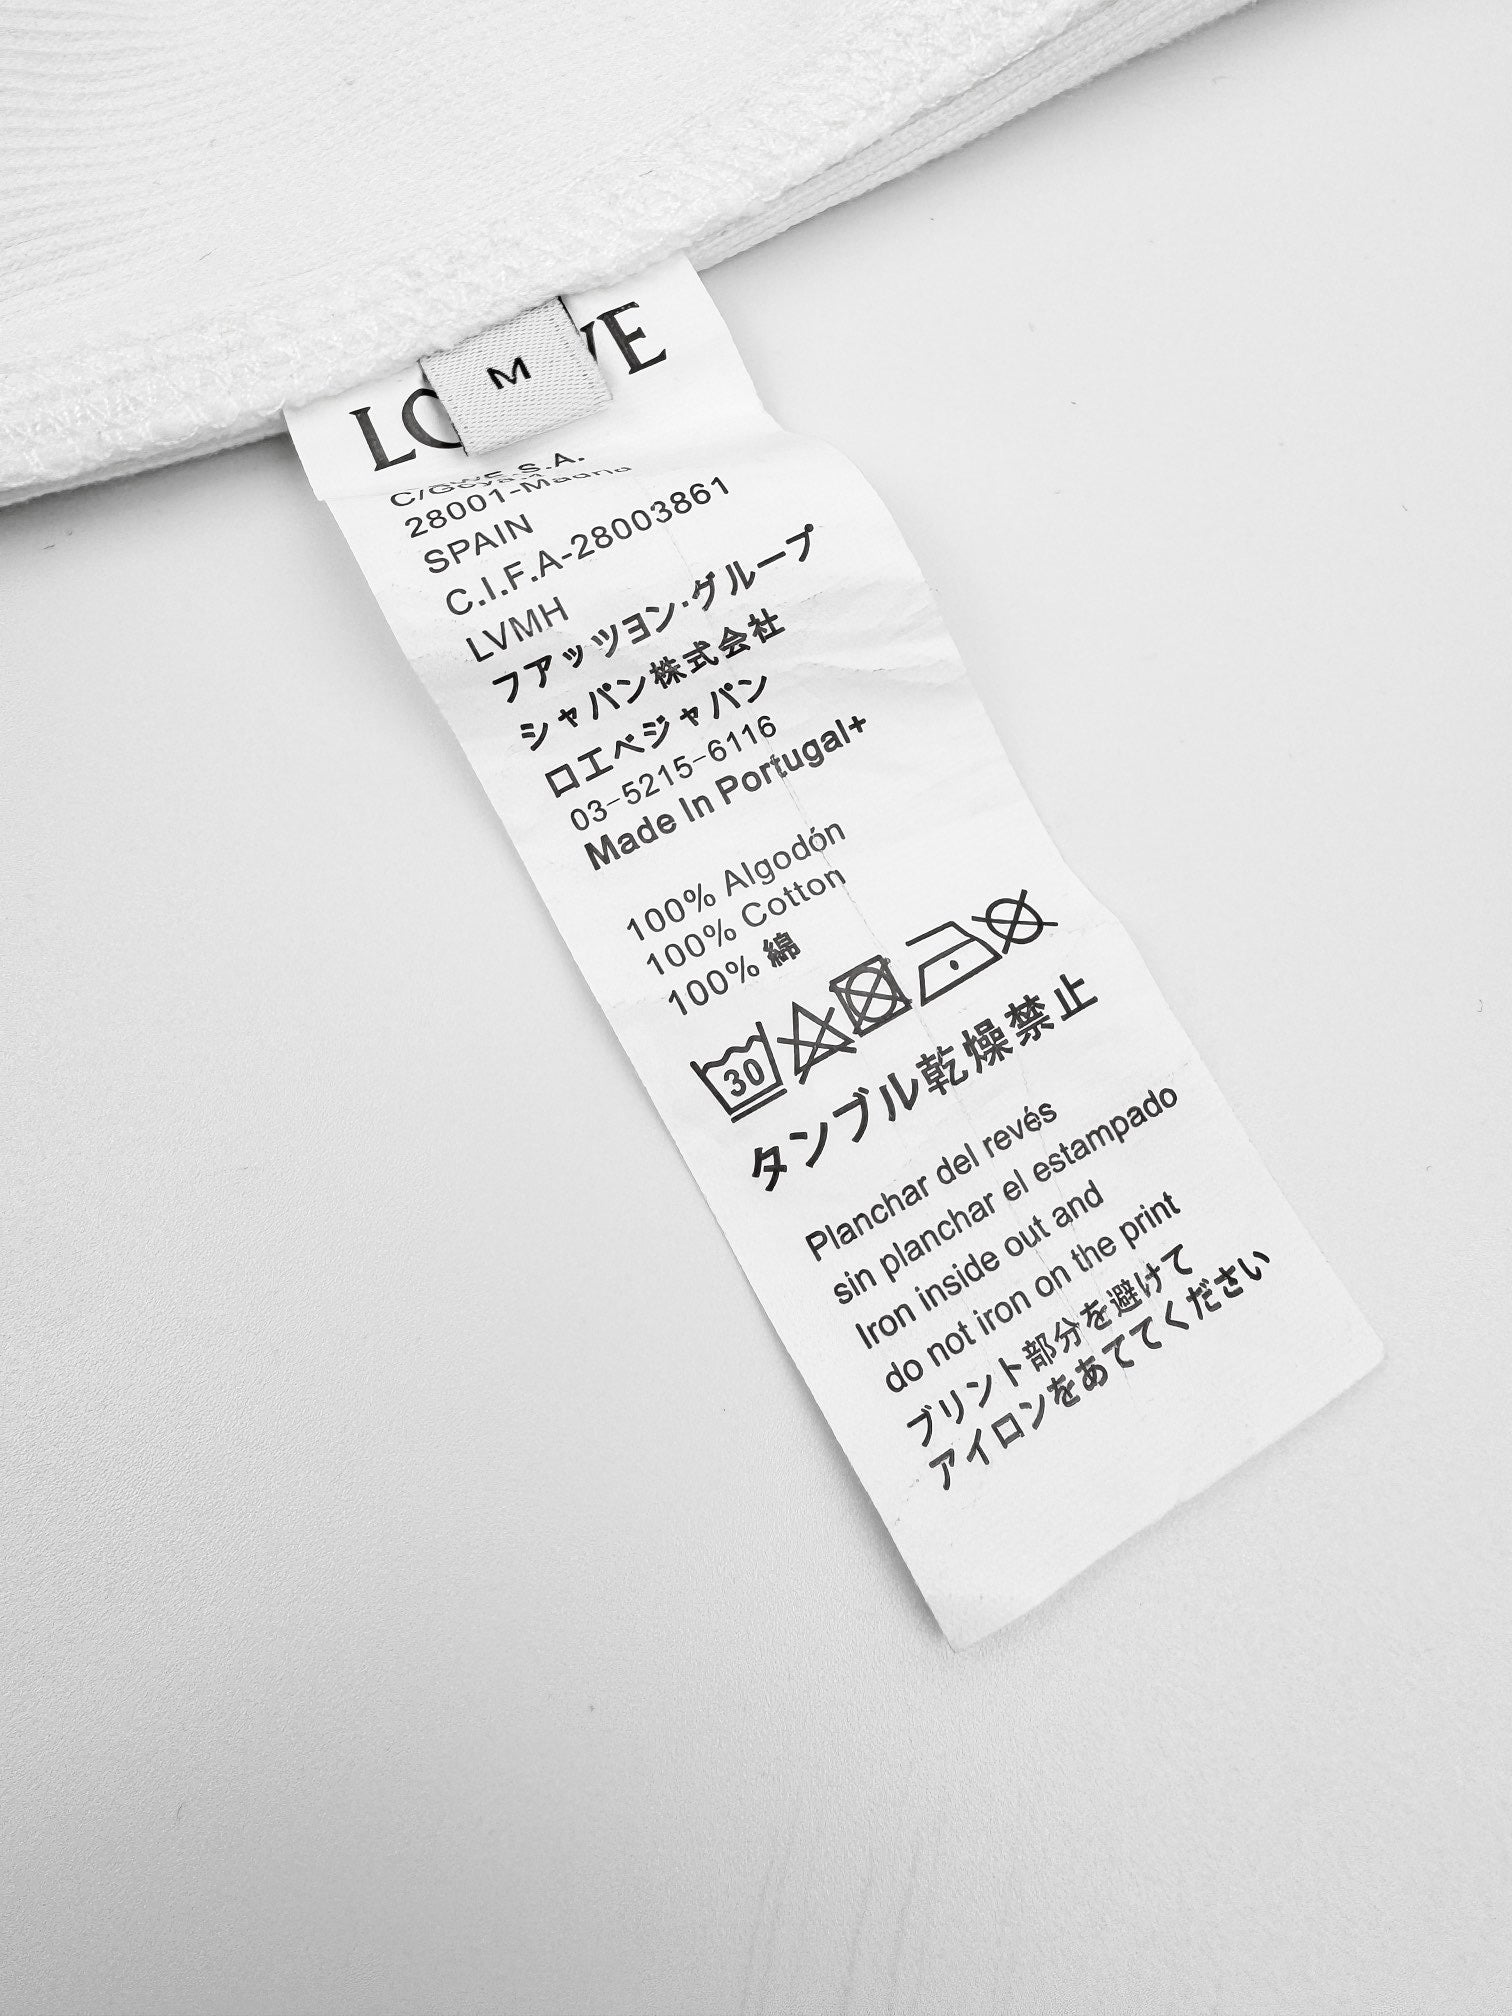 M
LO WE
WE S.A.
28001-Madrid
SPAIN
C.I.F.A-28003861
LVMH
フアッツヨン·グループ
シャパン株式会社
ロエベジャパン
03-5215-6116
Made In Portugal+
100% Algodón
100% Cotton
100% 綿
30
タンブル乾燥禁止
Planchar del revés
sin planchar el estampado
Iron inside out and
do not iron on the print
ブリント部分を避けて
アイロンをあててください